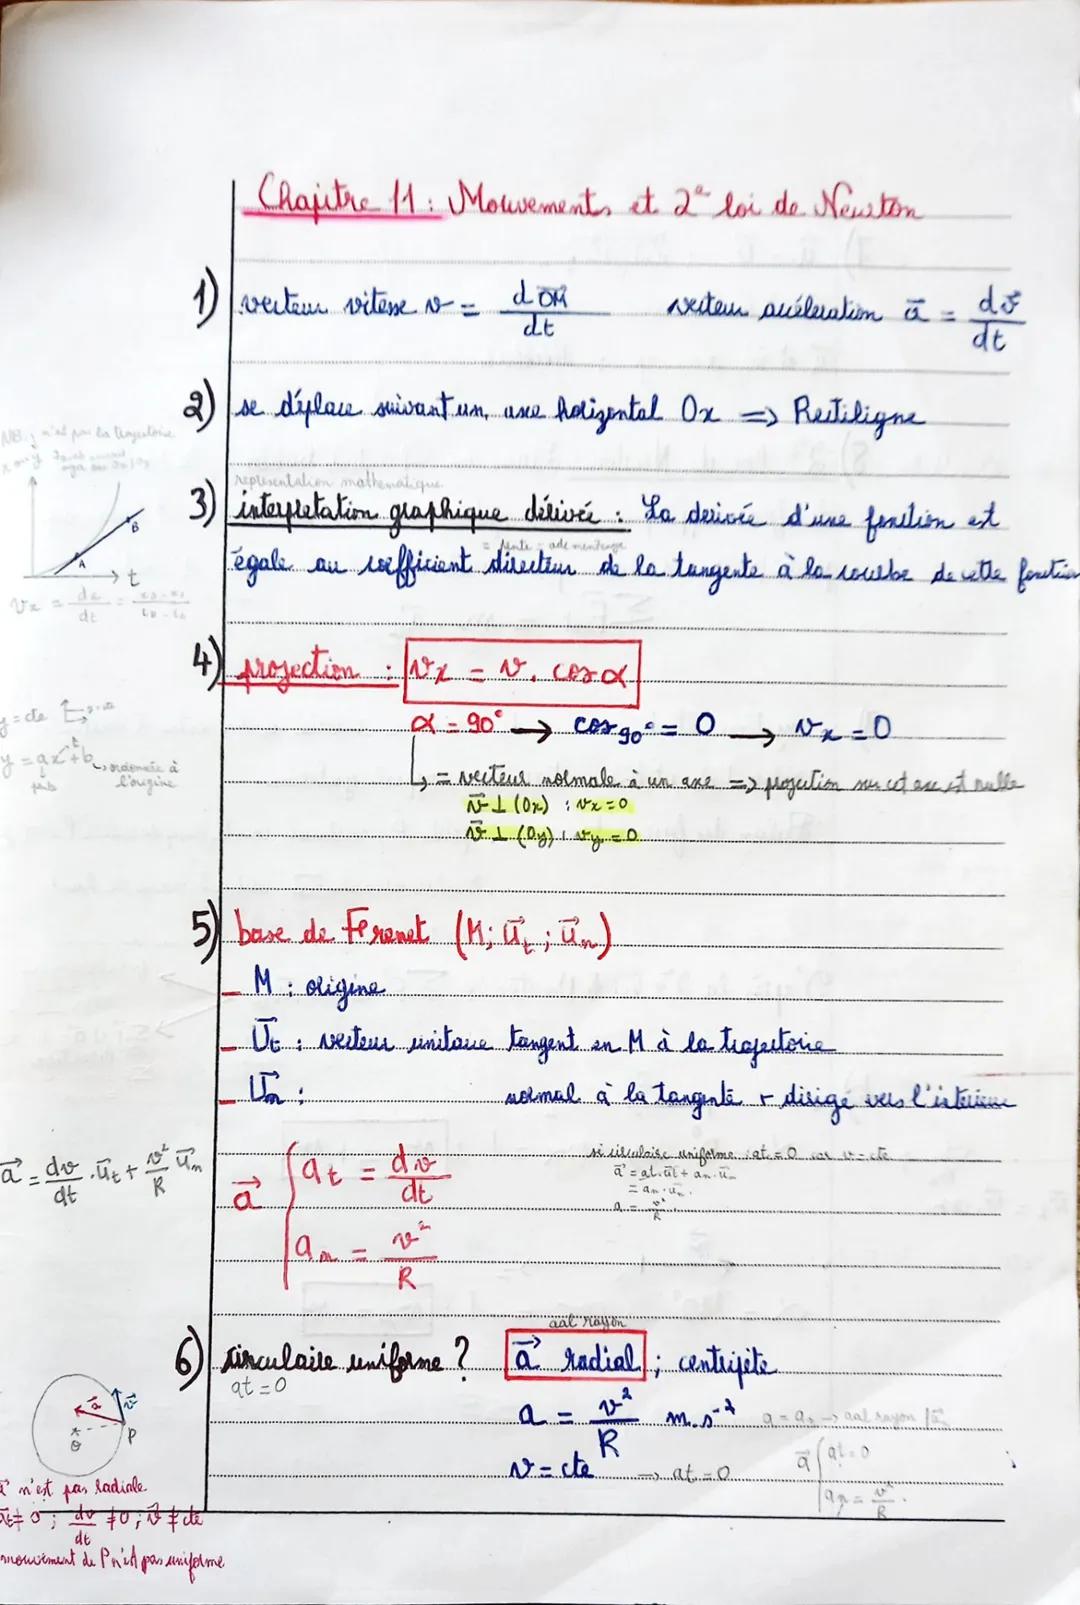 Chapitre 11 : Mouvements et 2e loi de Newton
1) vecteur vitesse v = dOM/dt vecteur accéleration a⃗ = dv⃗/dt
2) se déplace suivant un axe horizontal Ox => Rectiligne
NB : n'est pas la trajectoire
représentation mathématique
3) interpretation graphique dérivée : La derivée d'une fonction est
= pente
égale au coefficient directeur de la tangente à la courbe de cette fonction
A B t
Vx = dx/dt =
4) projection : vx = v . cos α
α = 90° → cos 90° = 0 → vx = 0
y = cte
y = ax + b
ordonnée à l'origine
↳ = vecteur normale à un axe => projection sur cet axe est nulle
v⃗ ⊥ (Ox) : vx = 0
v⃗ ⊥ (Oy) : vy = 0
5) base de Frenet (M; u⃗t ; u⃗n)
_ M : origine
_ U⃗t : vecteur unitaire tangent en M à la trajectoire
_ U⃗n : normal à la tangente + dirigé vers l'intérieur
a⃗ = dv/dt . u⃗t + v²/R u⃗n
a⃗ { at = dv/dt
an = v²/R
si circulaire uniforme : at = 0 car v = cte
a⃗ = at.u⃗t + an.u⃗n
= an.u⃗n
a = v²/R
6) circulaire uniforme ? a⃗ radial ; centripète
at = 0
a = v²/R m.s⁻²
v = cte → at = 0
a⃗ { at = 0
an = v²/R
a⃗ v⃗ O P
a⃗ n'est pas radiale
at ≠ 0 ; dv/dt ≠ 0 ; v⃗ ≠ cte
mouvement de P n'est pas uniforme